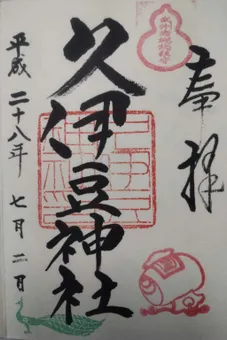 奉拝
久伊豆神社
平成二十八年七月二日